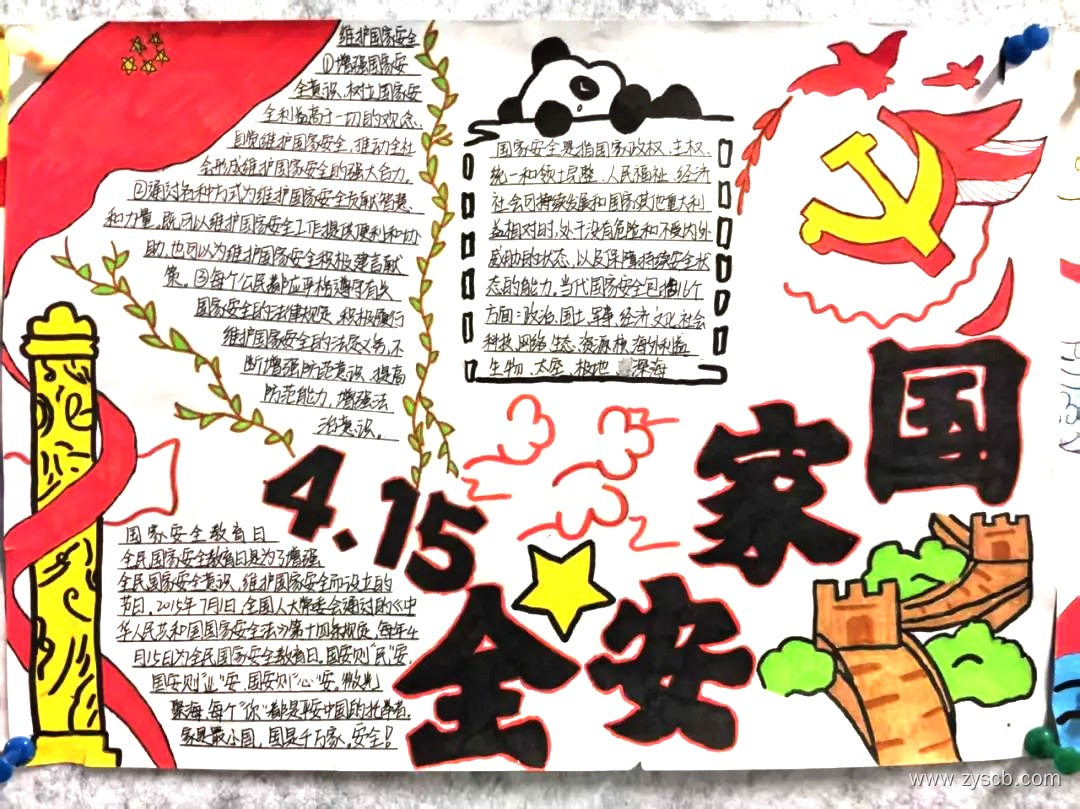 维护国家安全
①增强国家安
全意识，树立国家安
全利益高于一切的观念，
自觉维护国家安全，推动全社
会形成维护国家安全的强大合力。
②通过各种方式为维护国家安全贡献智慧
和力量，既可以维护国家安全工作提供便利和协
助，也可以为维护国家安全积极建言献
策。③每个公民都应严格遵守有关
国家安全的法律规定，积极履行
维护国家安全的法定义务，不
断增强防范意识，提高
防范能力，增强法
治意识。
国家安全是指国家政权、主权、
统一和领土完整、人民福祉、经济
社会可持续发展和国家其他重大利
益相对时，处于没有危险和不受内外
威胁的状态，以及保障持续安全状
态的能力。当代国家安全包括16个
方面：政治、国土、军事、经济、文化、社会
科技、网络、生态、资源、核、海外利益
生物、太空、极地、深海
4.15
国家安全
国家安全教育日
全民国家安全教育日是为了增强
全民国家安全意识，维护国家安全而设立的
节日。2015年7月1日，全国人大常委会通过的《中
华人民共和国国家安全法》第十四条规定，每年4
月15日为全民国家安全教育日。国安则“民”安，
国安则“业”安，国安则“心”安，微光
聚海，每个“你”都是平安中国的
家是最小国，国是千万家。安全！
www.zyscb.com